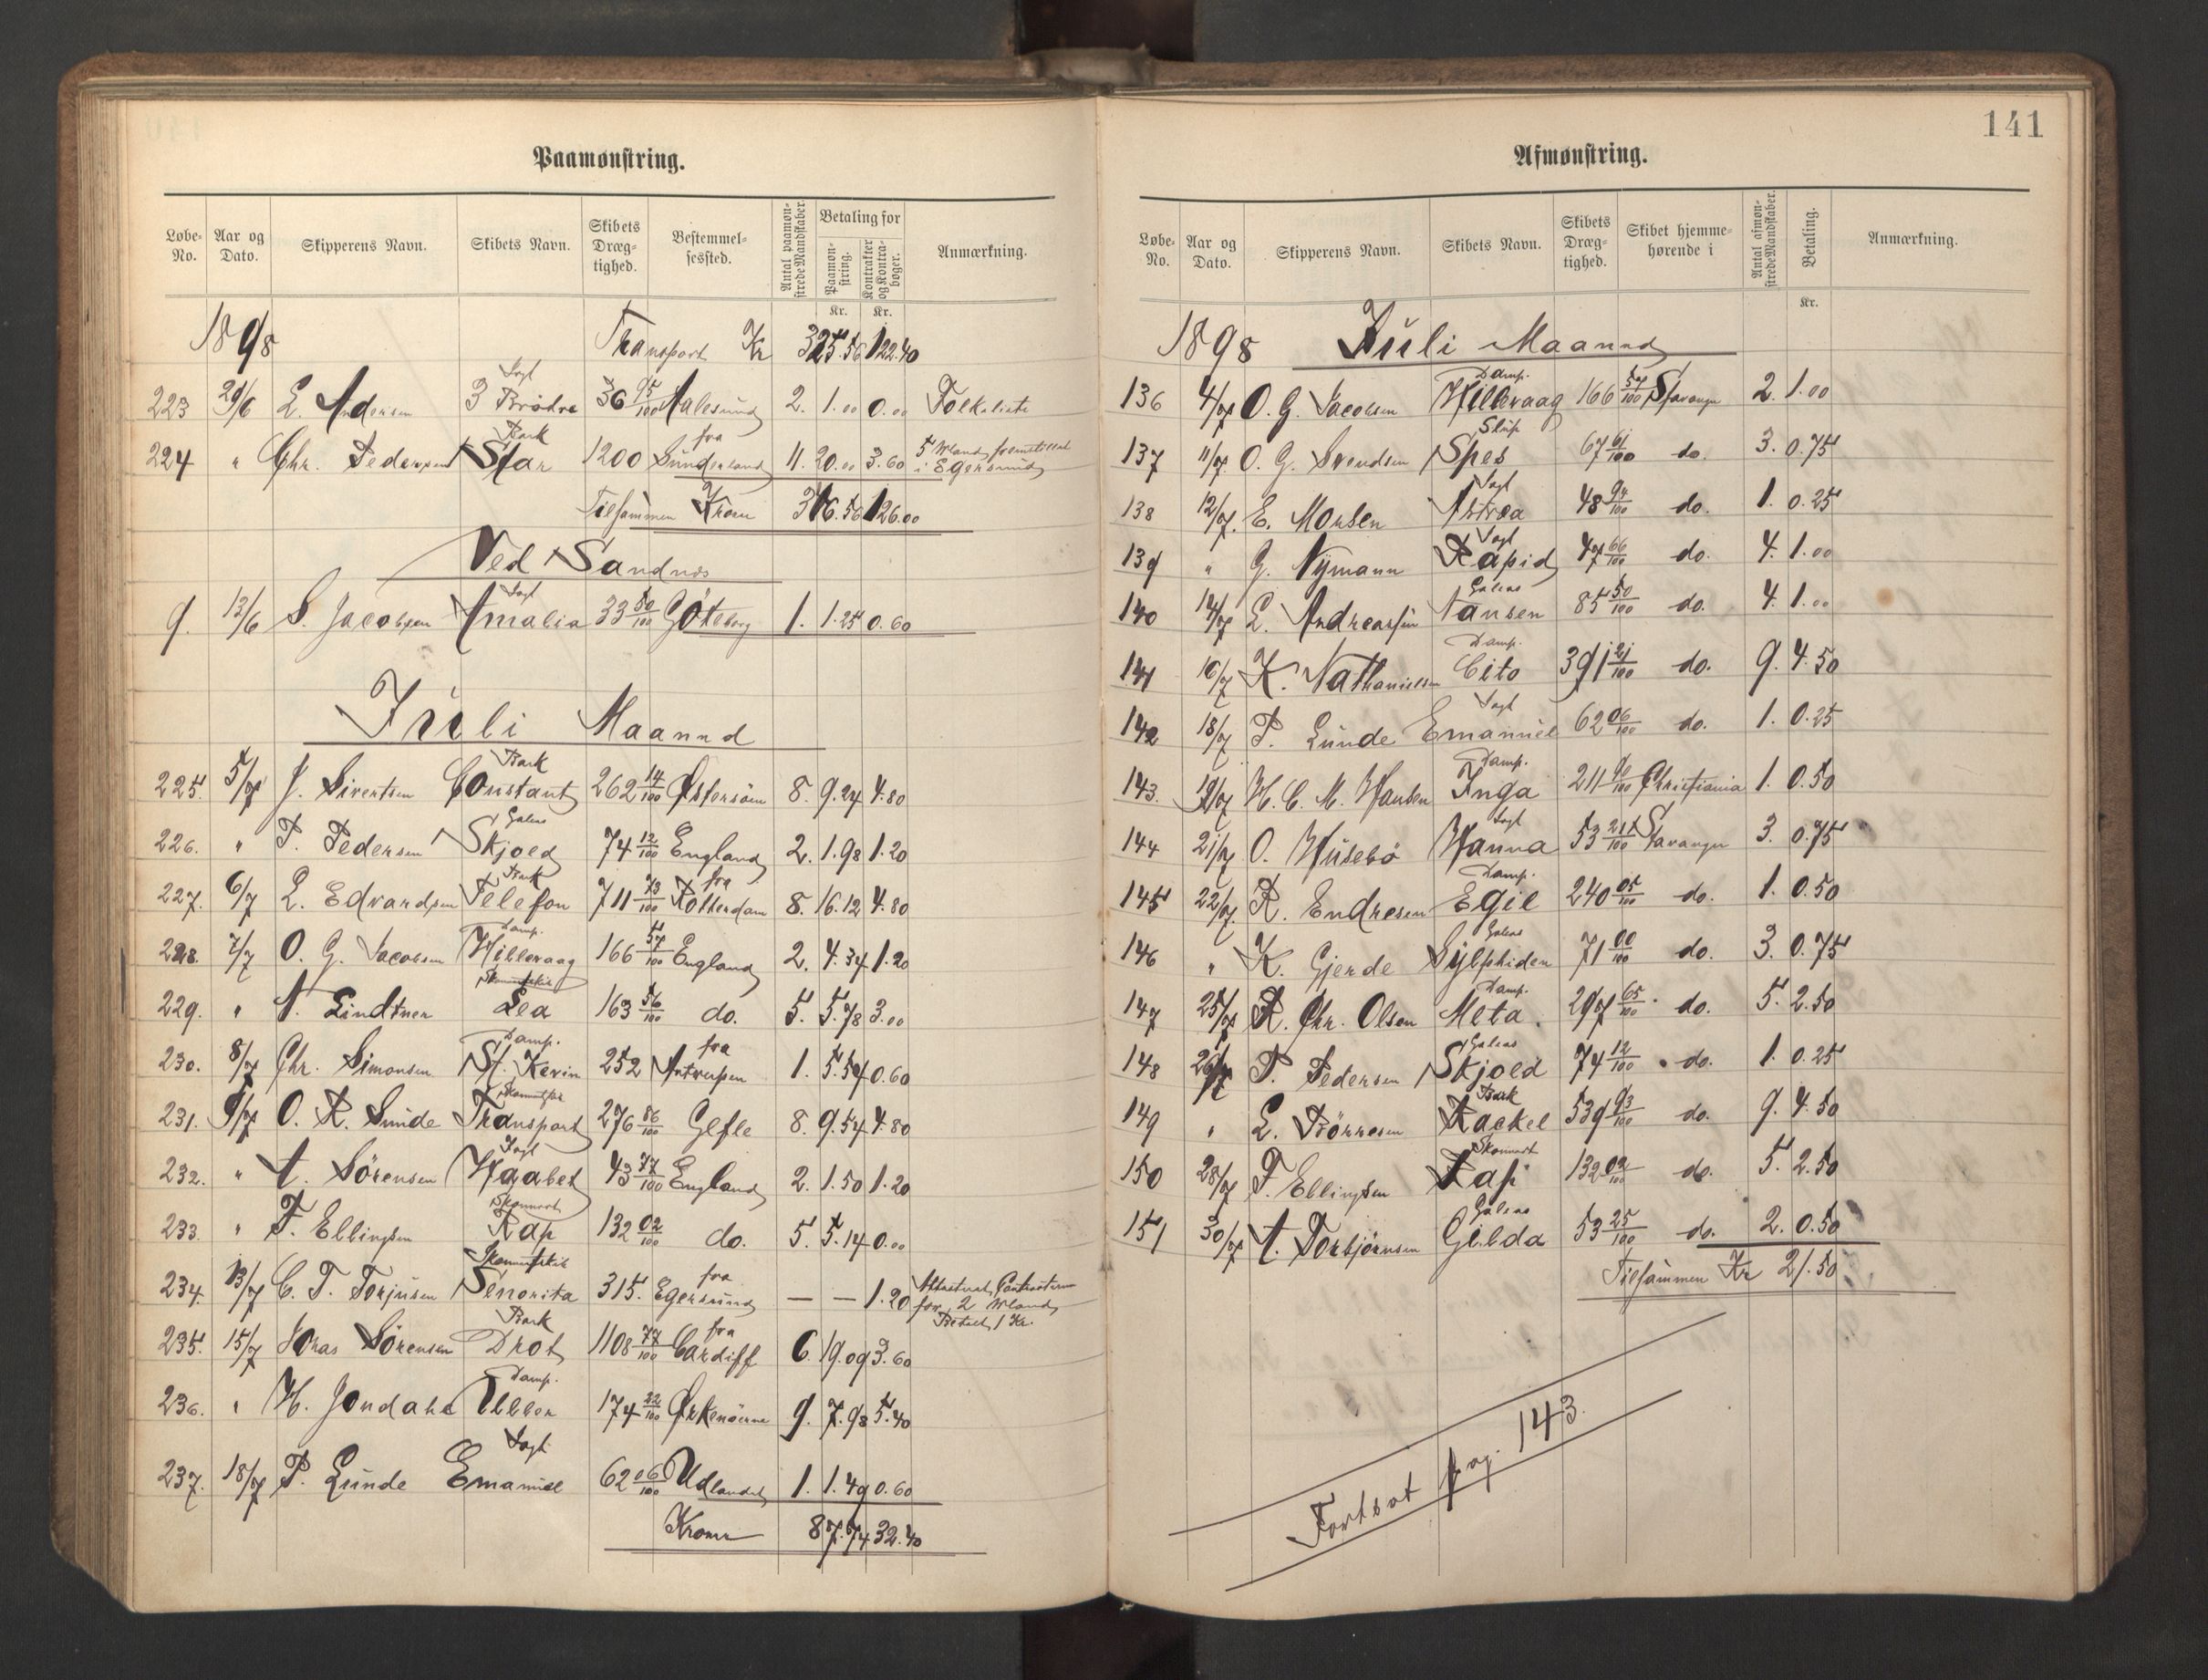 Paamønstring.
Løbe-No. Aar og Dato. Skipperens Navn. Skibets Navn. Skibets Dræg-tighed. Bestemmel-sessted. Antal paamøn-strede Mandskaber. Betaling for Paamøn-string. Kontrakter og Kontra-bøger. Anmærkning.
Kr. Kr.
1898 Transport Kr 325.56 122.40
223 29/6 L. Andersen Jagt 3 Brødre 36 95/100 Aalesund 2. 1.00 0.00 Folkeliste
224 " Chr. Pedersen Bark Star 1200 fra Sunderland 11. 20.00 3.60 5 Mand i Egersund
Tilsammen Kroner 346.56 126.00
Ved Sandnæs
9. 13/6 S. Jacobsen Jagt Amalia 33 50/100 Göteborg 1. 1.25 0.60
Juli Maaned
225. 5/7 J. Sivertsen Bark Constant 262 14/100 Østersöen 8. 9.24 4.80
226. " P. Pedersen Galeas Skjold 74 12/100 England 2. 1.98 1.20
227. 6/7 L. Edvardsen Bark Telefon 711 73/100 fra Rotterdam 8. 16.12 4.80
228. 7/7 O. G. Jacobsen Damp. Hillevaag 166 57/100 England 2. 4.34 1.20
229. " A. Lindtner Lea 163 56/100 do. 5. 5.78 3.00
230. 8/7 Chr. Simonsen Damp. St. Kevin 252 fra Antwerpen 1. 5.54 0.60
231. 9/7 O. R. Sunde Transport 276 86/100 Gefle 8. 9.54 4.80
232. " A. Sörensen Jagt Haabet 43 77/100 England 2. 1.50 1.20
233. " F. Ellingsen Skonnert Rap 132 02/100 do. 5. 5.14 0.00
234. 13/7 C. T. Torjusen Senorita 315. fra Egersund — — 1.20 for 2 Mand Betalt 1 Kr.
235. 15/7 Jonas Sörensen Bark Drot 1108 77/100 fra Cardiff 6. 19.09 3.60
236. " H. Jondahl Damp. Ellen 174 22/100 Ørkenöerne 9. 7.98 5.40
237. 18/7 P. Lunde Jagt Emanuel 62 06/100 Udlandet 1. 1.49 0.60
Kroner 87.74 32.40
141
Afmønstring.
Løbe-No. Aar og Dato. Skipperens Navn. Skibets Navn. Skibets Dræg-tighed. Skibet hjemme-hørende i Antal afmøn-strede Mandskaber. Betaling. Anmærkning.
Kr.
1898 Juli Maaned
136 4/7 O. G. Jacobsen Damp. Hillevaag 166 57/100 Stavanger 2. 1.00
137 11/7 O. G. Svendsen Slup Spes 67 61/100 do. 3. 0.75
138 12/7. E. Monsen Jagt Astrea 48 94/100 do. 1. 0.25
139 " G. Nymann Jagt Rapid 47 66/100 do. 4. 1.00
140 14/7 L. Andreassen Galeas Nansen 85 50/100 do. 4. 1.00
141 16/7 K. Nathanielsen Damp. Cito 391 21/100 do. 9. 4.50
142 18/7 P. Lunde Jagt Emanuel 62 06/100 do. 1. 0.25
143. 19/7 H. C. M. Hansen Damp. Inga 211 90/100 Christiania 1. 0.50
144 21/7 O. Husebö Jagt Hanna 53 21/100 Stavanger 3. 0.75
145 22/7. R. Endresen Damp. Egil 240 05/100 do. 1. 0.50
146 " K. Gjerde Galeas Sylphiden 71 00/100 do. 3. 0.75
147 25/7 R. Chr. Olsen Damp. Meta. 297 65/100 do. 5. 2.50
148 26/7 P. Pedersen Galeas Skjold 74 12/100 do. 1. 0.25
149 " L. Börresen Bark Rackel 539 93/100 do. 9. 4.50
150 28/7 F. Ellingsen Skonnert Rap 132 02/100 do. 5. 2.50
151 30/7 A. Torbjörnsen Galeas Gilda 53 25/100 do. 2. 0.50
Tilsammen Kr 21.50
Fortsat pag. 143.